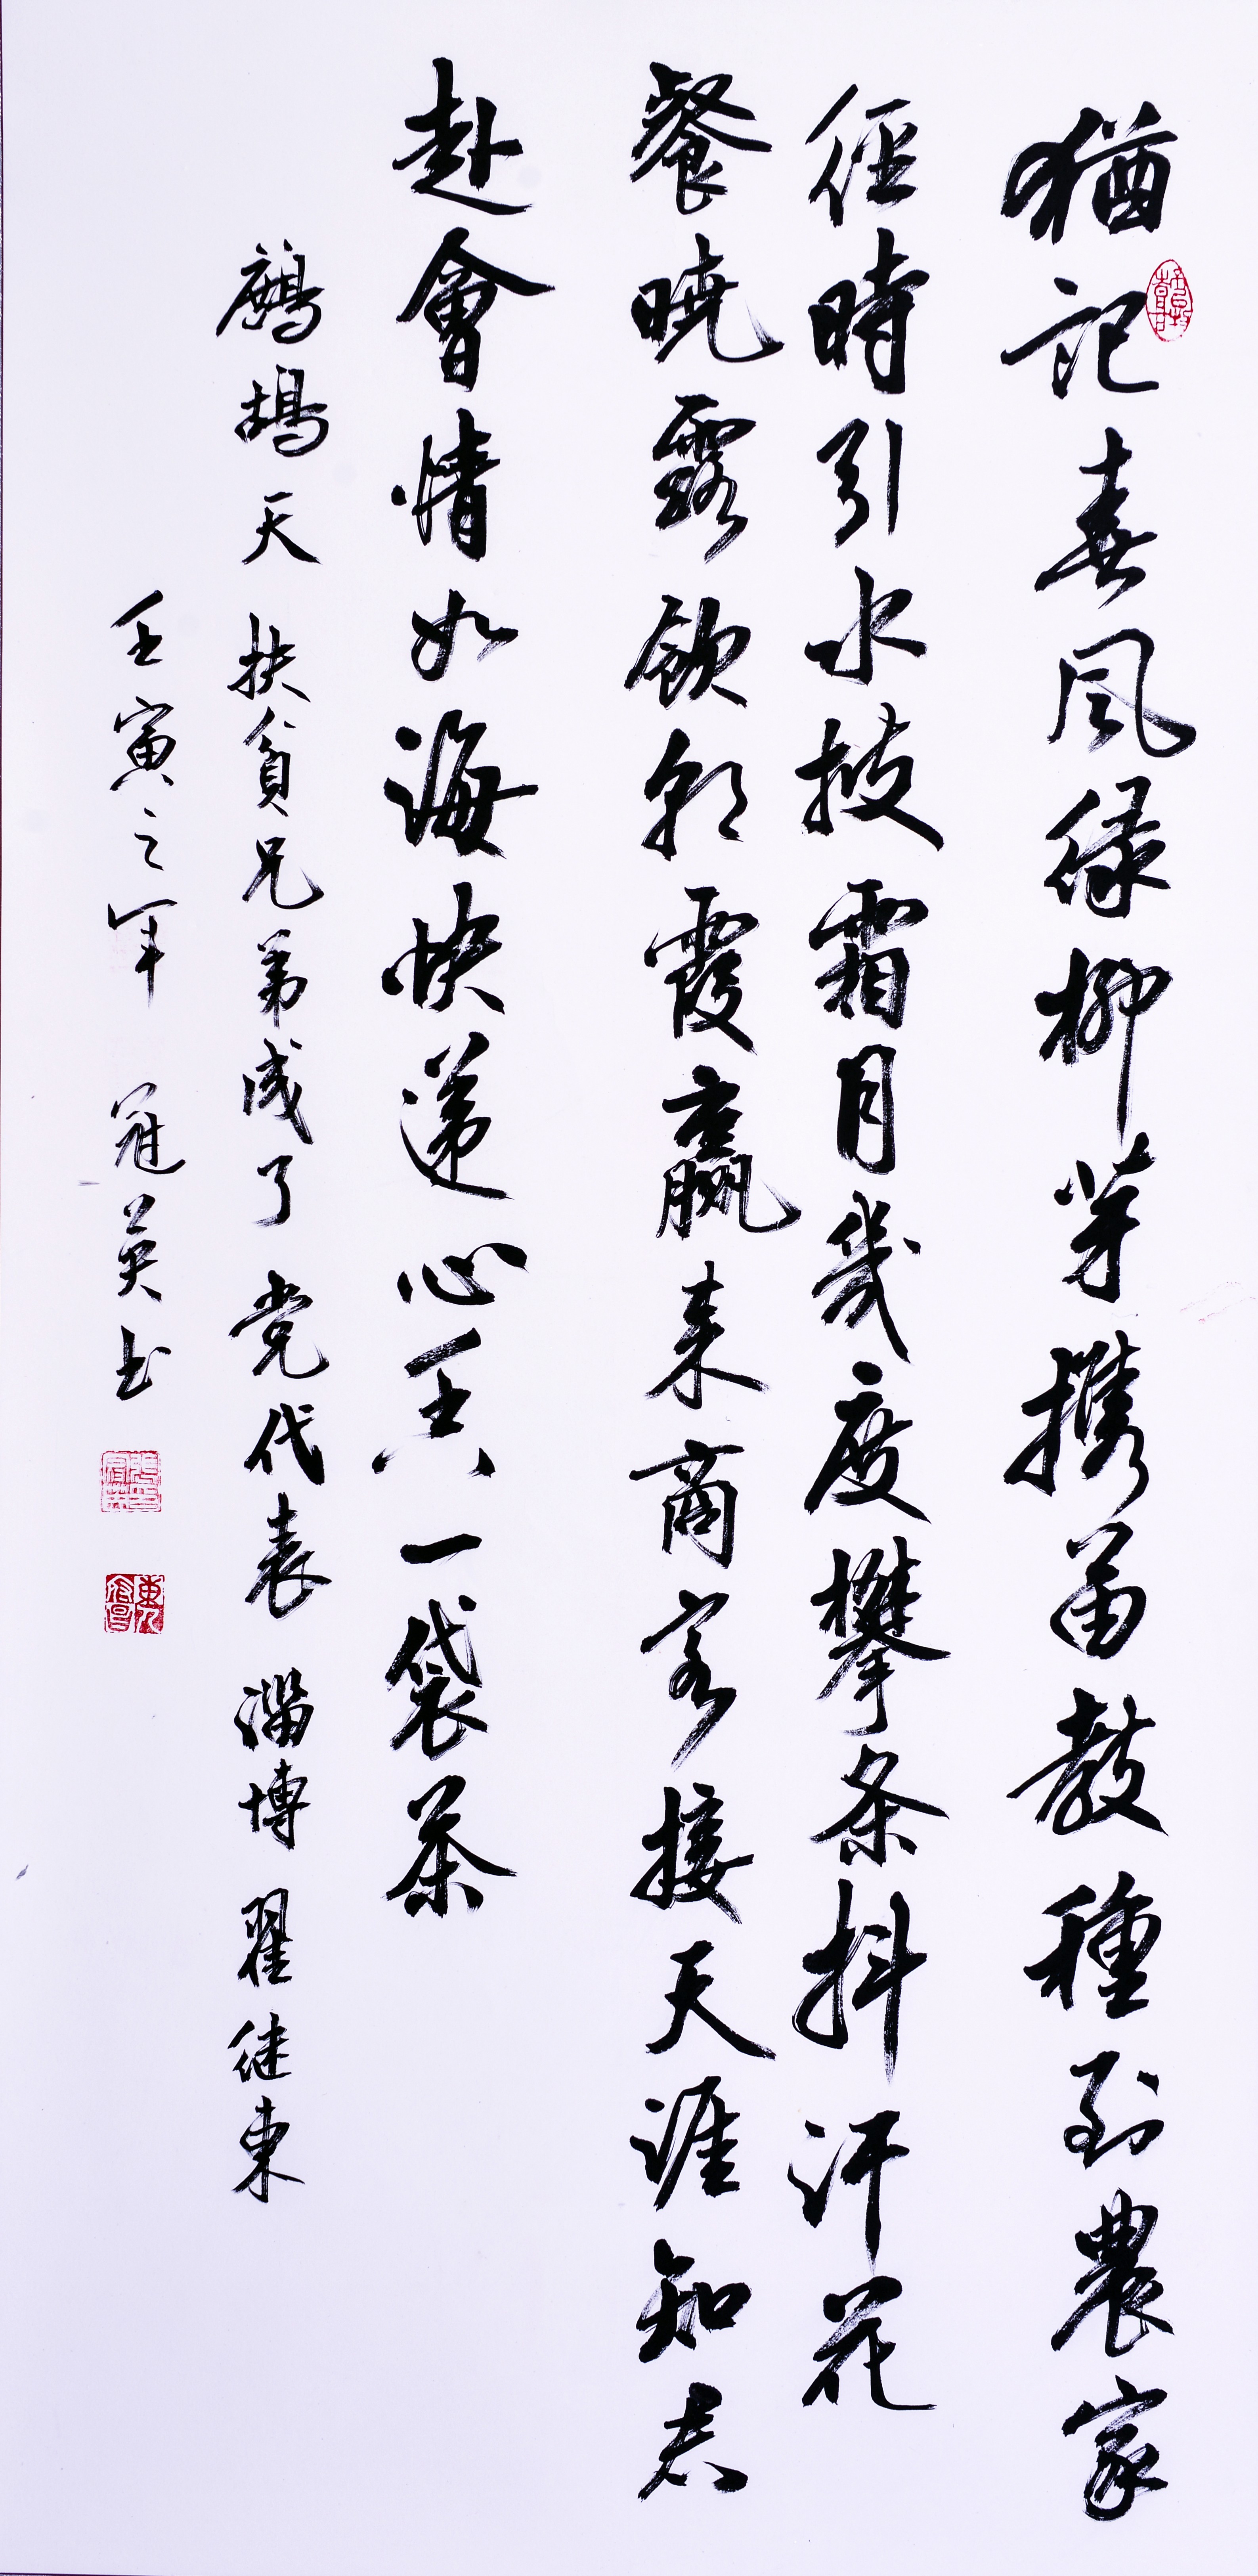 猶記春風綠柳芽攜苗教種到農家
經時引水披霜月幾度攀条抖汗花
餐曉露飲朝霞贏来商客接天涯知君
赴會情如海快遞心香一袋茶
鷓鴣天 扶貧兄弟成了党代表 淄博 翟继東
壬寅之年 冠英书